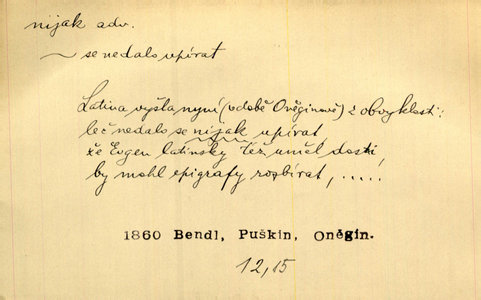 nijak adv.
~ se nedalo upírat
Latina vyšla nyní (v době Oněginově) z obvyklosti:
leč nedalo se nijak upírat,
že Evgen latinsky též uměl dosti,
by mohl epigrafy rozbírat, .....!
1860 Bendl, Puškin, Oněgin.
12, 15